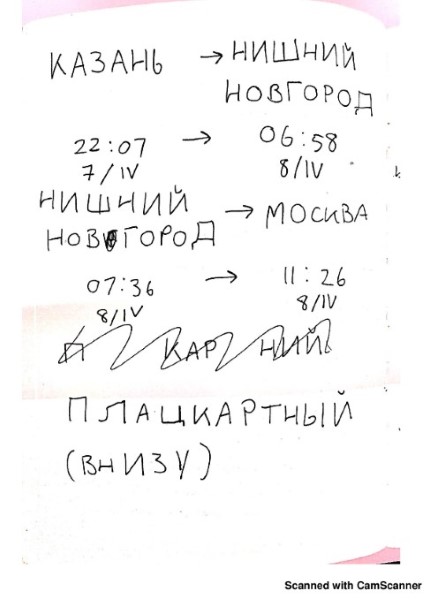 КАЗАНЬ → НИШНИЙ
НОВГОРОД
22:07 → 06:58
7/IV 8/IV
НИШНИЙ → МОСКВА
НОВГОРОД
07:36 → 11:26
8/IV 8/IV
ПЛАЦКАРТНЫЙ
(ВНИЗУ)
Scanned with CamScanner